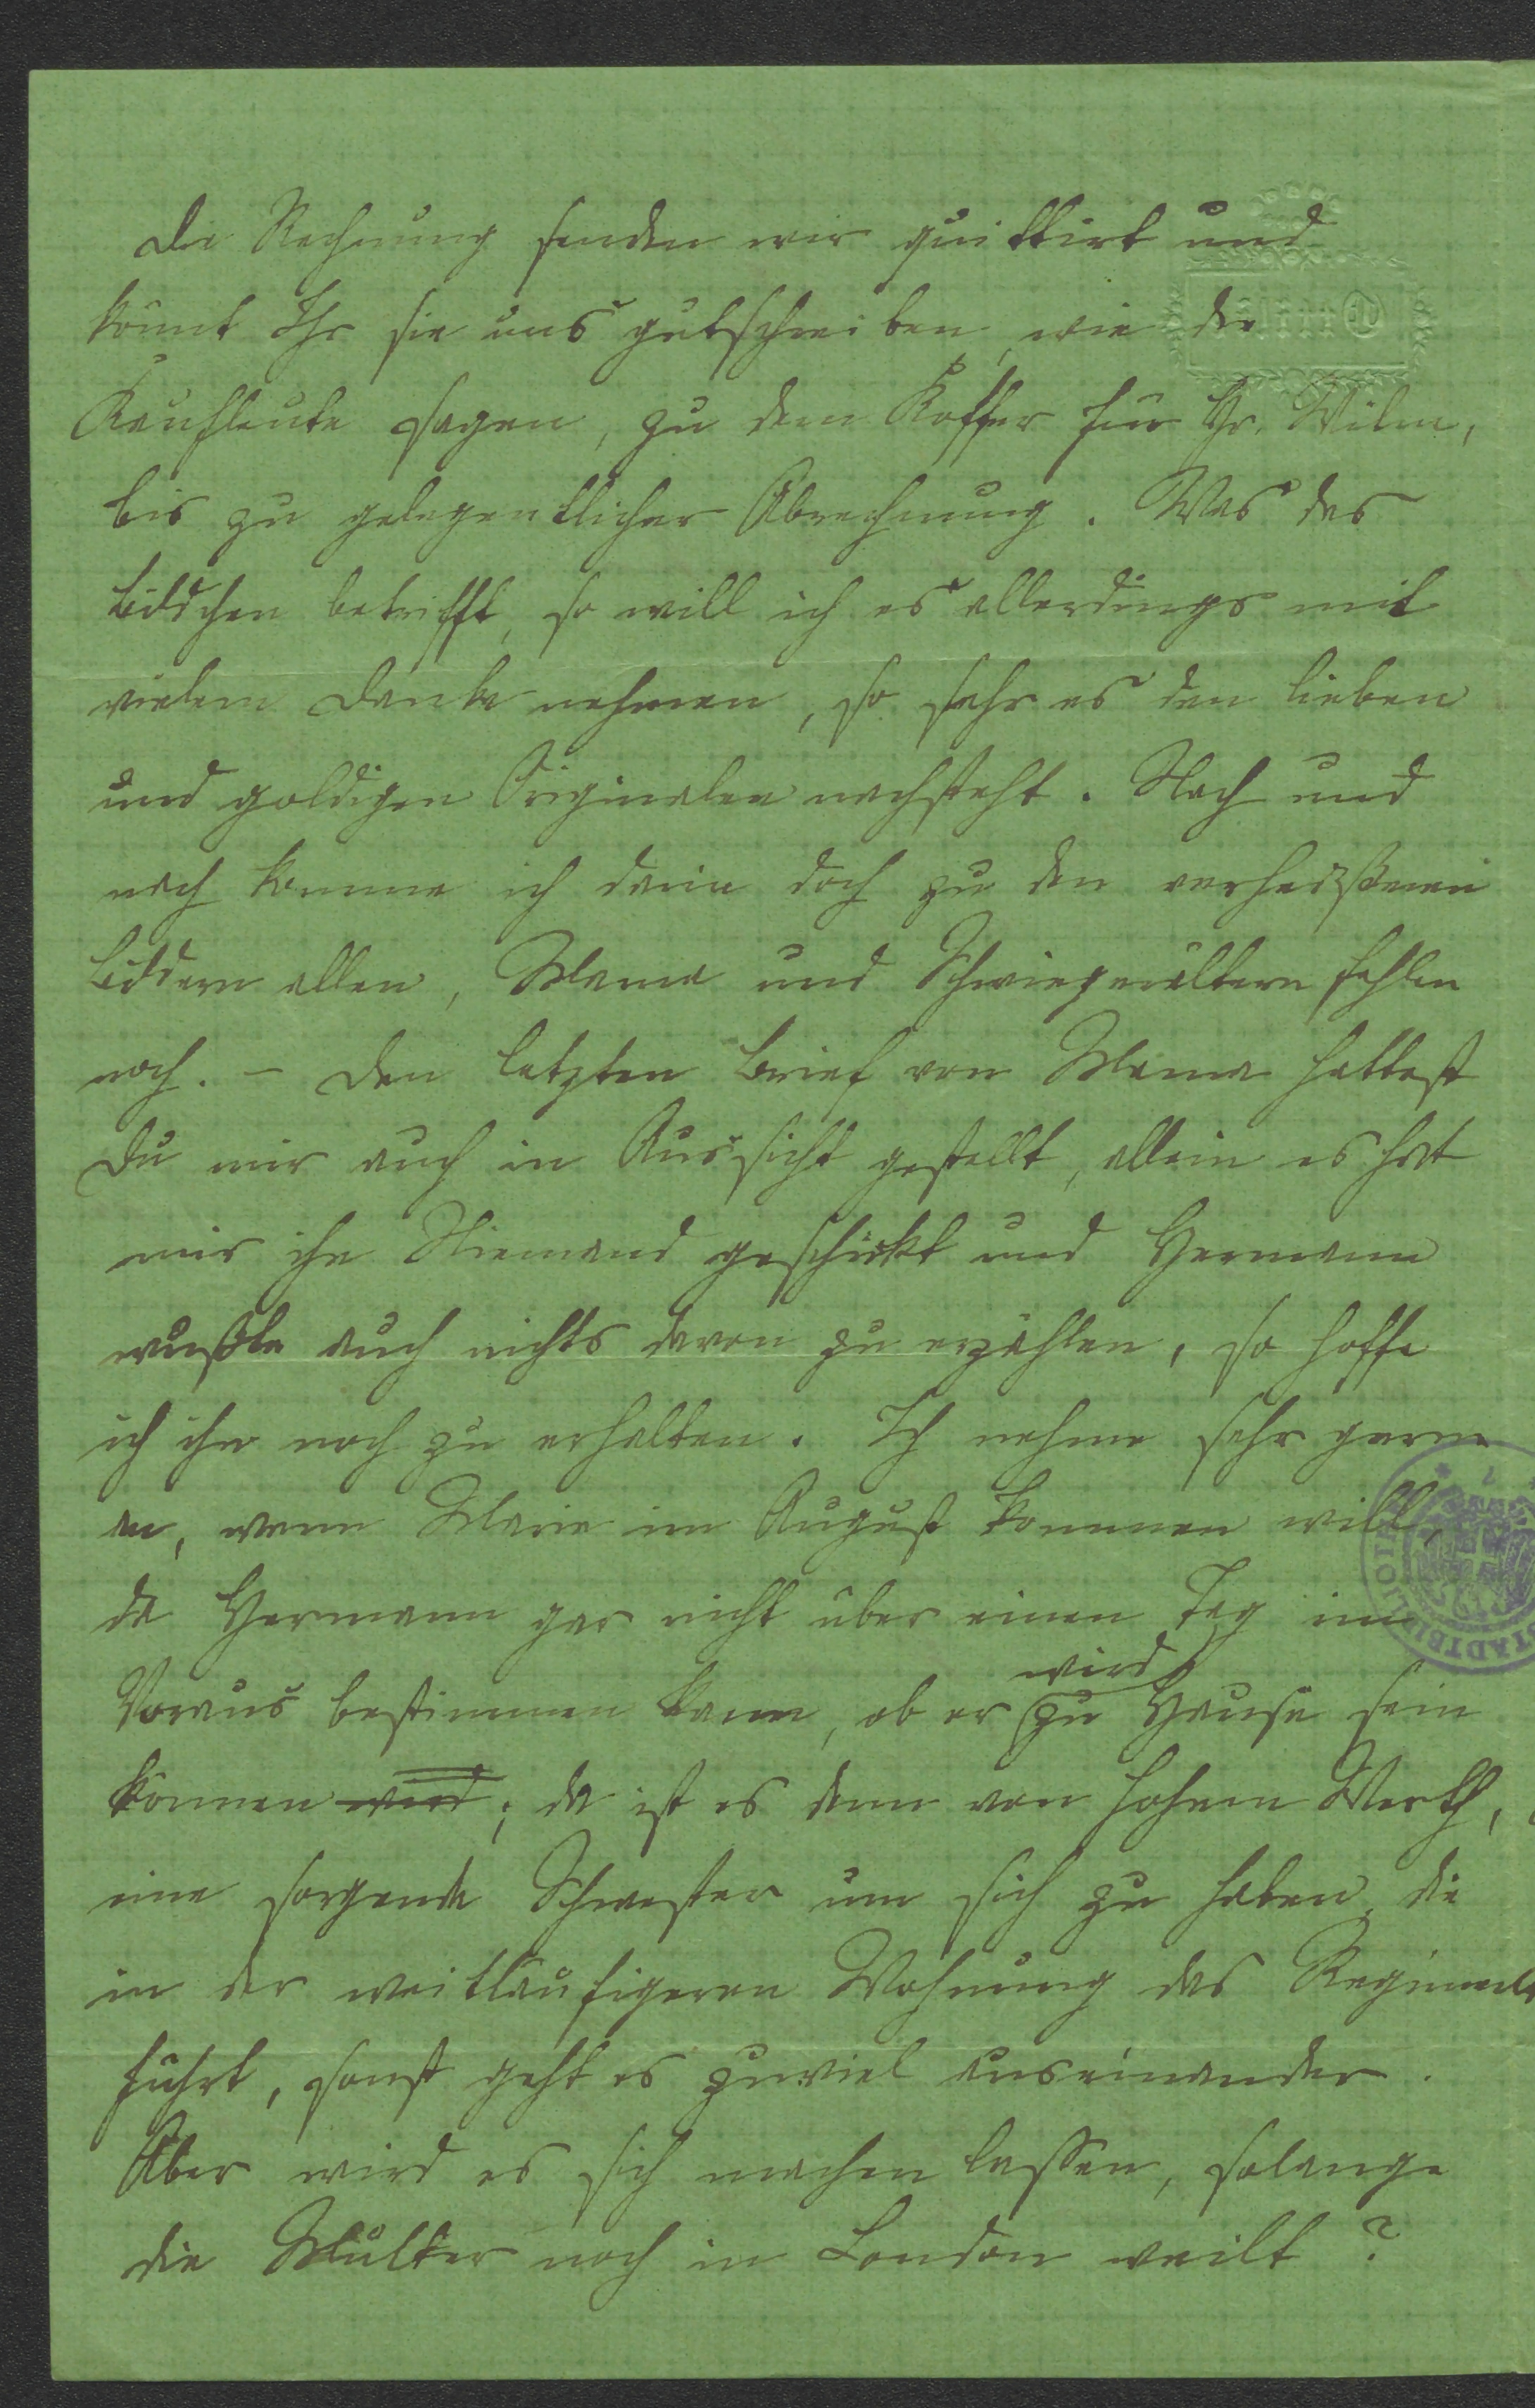 Die Rechnung senden wir quittirt und
könnt Ihr sie uns gutschreiben, wie die
Kaufleute sagen, zu dem Koffer für Hr. Wilm,
bis zu gelegentlicher Abrechnung. Was das
Bildchen betrifft, so will ich es allerdings mit
vielem Danke nehmen, so sehr es den lieben
und goldigen Originalen nachsteht. Nach und
nach komme ich dann doch zu den verheißenen
Bildern allen, Mama und Schwiegerältern fehlen
noch. – Den letzten Brief von Mama hattest
Du mir auch in Aussicht gestellt, allein es hat
mir ihn Niemand geschickt und Hermann
wußte auch nichts davon zu erzählen, so hoffe
ich ihn noch zu erhalten. Ich nehme sehr gerne
an, wenn Marie im August kommen will,
da Hermann gar nicht über einen Tag im
Voraus bestimmen kann, ob er wird zu Hause sein
können wird; da ist es denn von hohem Werth,
eine sorgende Schwester um sich zu haben, die
in der weitläufigeren Wohnung das Regiment
führt, sonst geht es zuviel auseinander.
Aber wird es sich machen lassen, solange
die Mutter noch in London weilt?